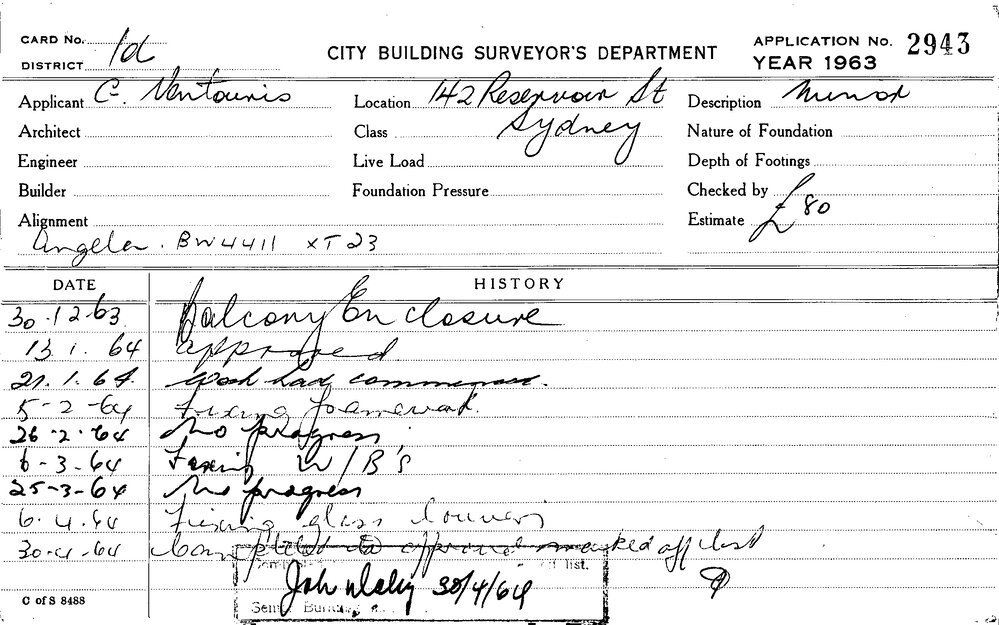 CARD No. 1d
DISTRICT
CITY BUILDING SURVEYOR'S DEPARTMENT
APPLICATION No. 2943
YEAR 1963
Applicant C. Ventouris
Location 142 Reservoir St
Sydney
Description Minor
Architect
Class
Nature of Foundation
Engineer
Live Load
Depth of Footings
Builder
Foundation Pressure
Checked by
Alignment
Estimate £80
Angela. BW4411 XT23
DATE HISTORY
30.12.63 Balcony Enclosure
13.1.64 approved
21.1.64. Work had commenced.
5-2-64 Fixing framework.
26-2-64 No progress
6-3-64 Fixing W/B's
25-3-64 No progress
6.4.64 Fixing glass louvers
30-4-64 Completed as approved marked off list
off list.
John 30/4/64
C of S 8488